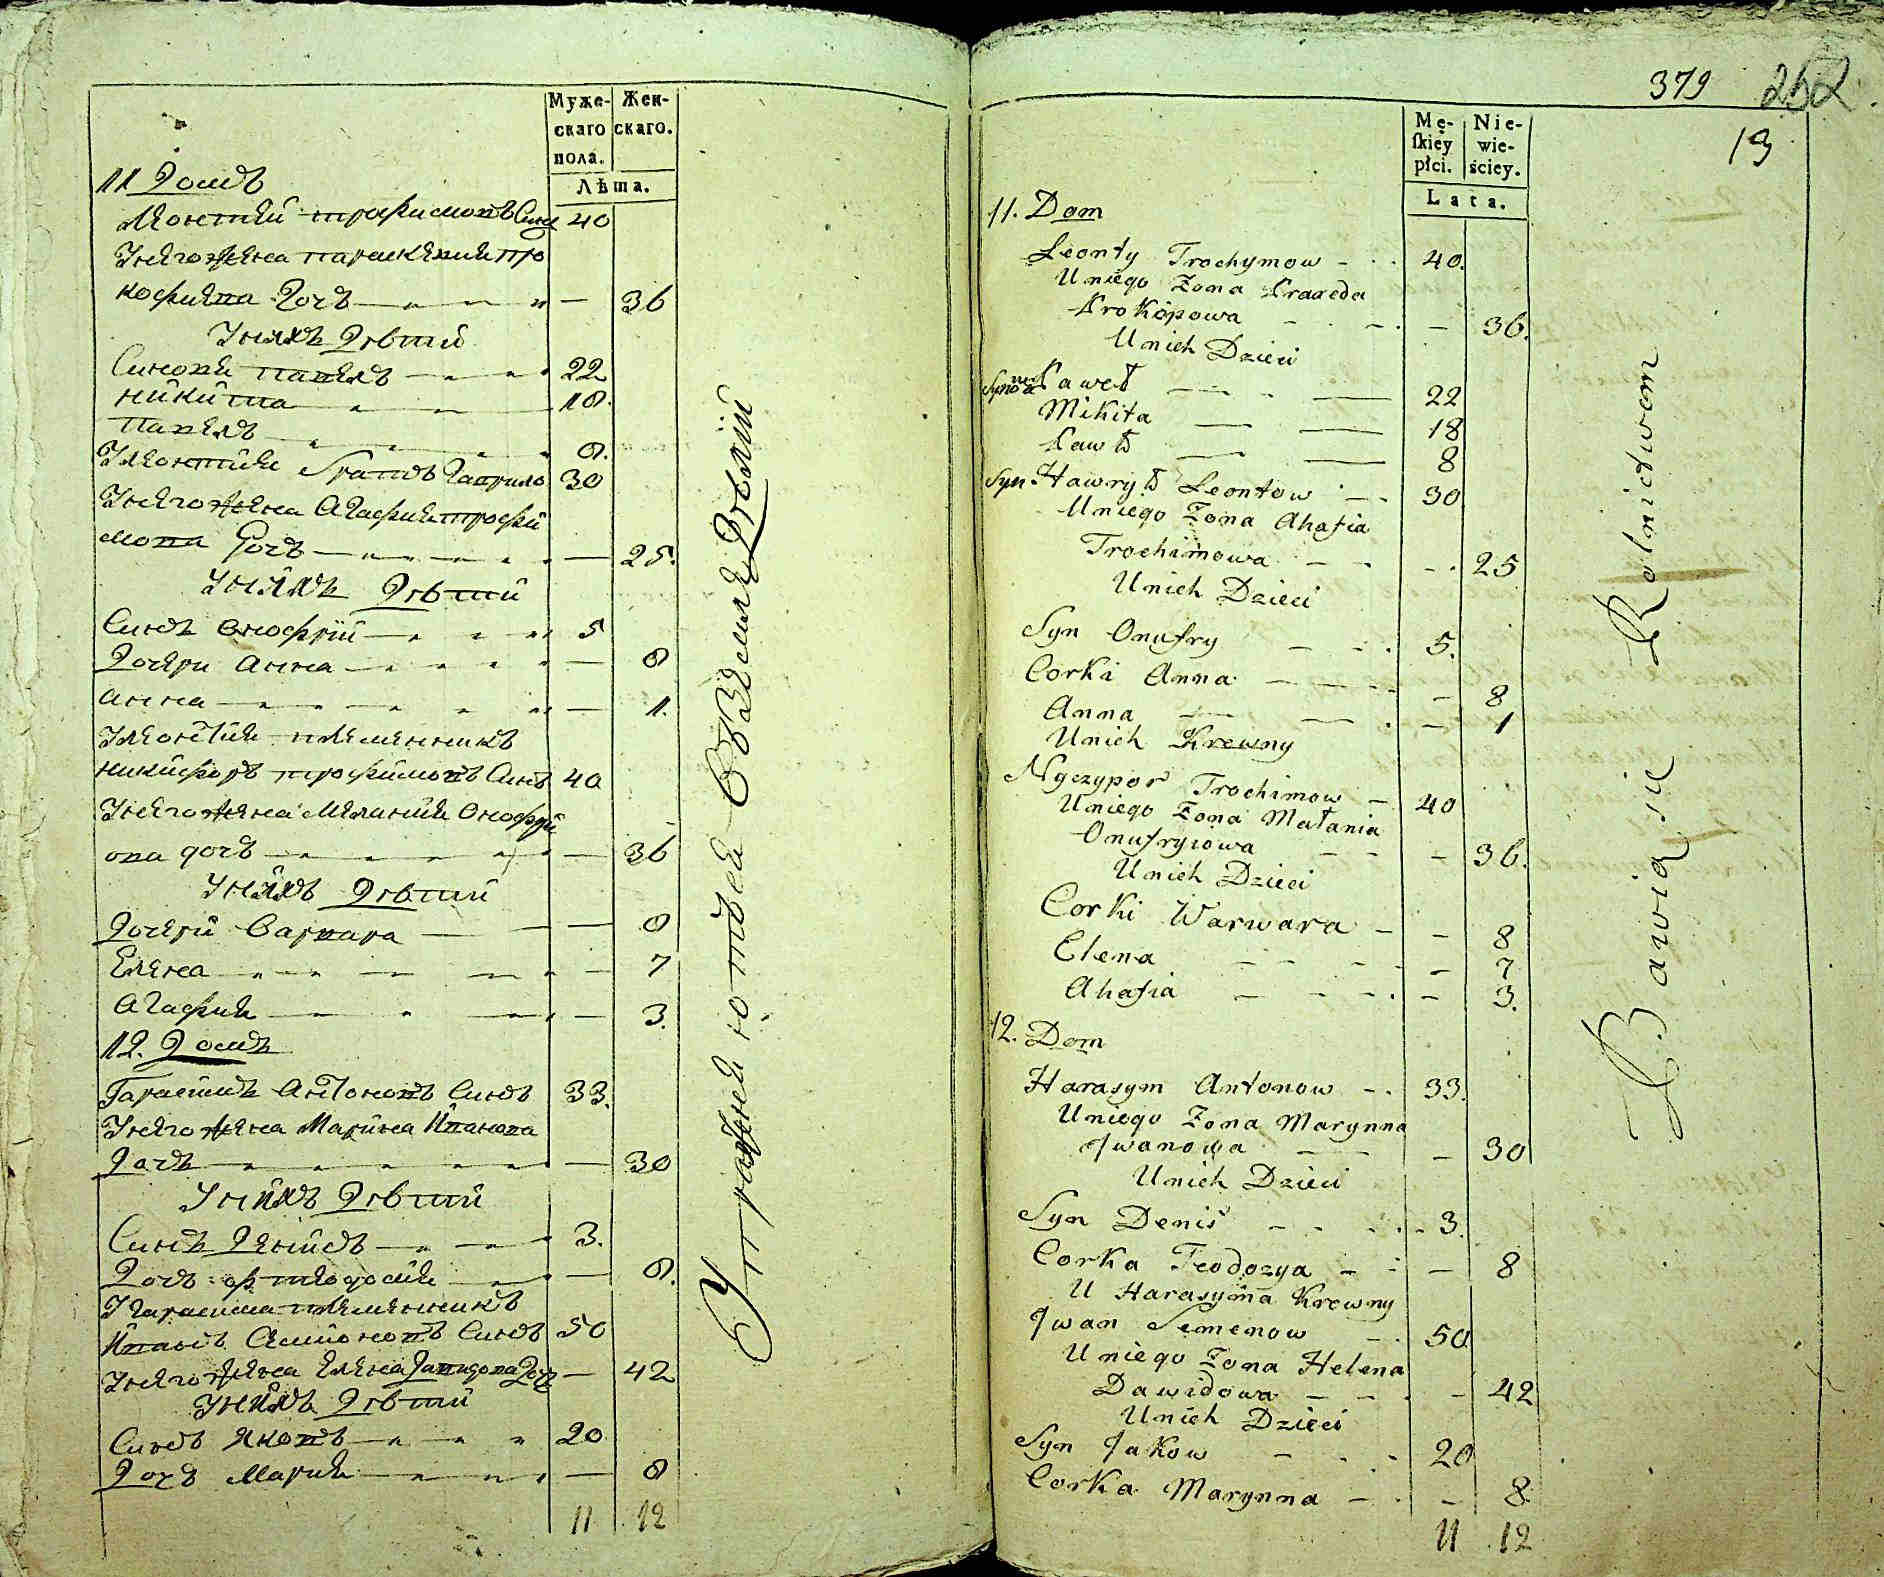 Муже-
скаго
пола.
Жен-
скаго.
Лѣта.
11 Домъ
Леонтий трофимовъ Синъ 40
Унего жена параскевия про
кофиева Дочъ — 36
Унихъ Дѣтий
Синови павелъ 22
никита 18.
павелъ 8.
Улеонтия братъ Гаврило 30
Унего жена Агафия трофи
мова Дочъ — 25.
Унихъ Дѣтий
Синъ Онофрий 5
Дочери Анна — 8
анна — 1.
Улеонтия племенникъ
никифоръ трофимовъ Синъ 40
Унего жена Мелания Онофри
ова дочъ — 36
Унихъ Дѣтий
Дочери Варвара — 8
Елена — 7
Агафия — 3.
12. Домъ
Гарасимъ Антоновъ Синъ 33.
Унего жена Марина Иванова
Дочъ — 30
Унихъ Дѣтий
Синъ Денисъ 3.
Дочъ фтеодосия — 8.
Угарасима племенникъ
Иванъ Семионовъ Синъ 50
Унего жена Елена Давидова Дочъ — 42
Унихъ Дѣтий
Синъ Яковъ 20
Дочъ Мария — 8
11 12
379 252
13
Mę-
ſkiéy
płci.
Nie-
wie-
ściey.
Lata.
11. Dom
Leonty Trochymow 40.
Uniego Zona Praxeda
Prokopowa — 36.
Unich Dzieci
Synowie Paweł 22
Mikita 18
Pawł 8
Syn Hawrył Leontow 30
Uniego Zona Ahafia
Trochimowa 25
Unich Dzieci
Syn Onufry 5.
Corki Anna — 8
Anna — 1
Unich Krewny
Nyczypor Trochimow 40
Uniego Zona Małania
Onufryiowa — 36.
Unich Dzieci
Corki Warwara — 8
Elena — 7
Ahafia — 3.
12. Dom
Harasym Antonow 33.
Uniego Zona Marynna
Jwanowa — 30
Unich Dzieci
Syn Denis 3.
Corka Teodozya — 8
U Harasyma Krewny
Jwan Semenow 50
Uniego Zona Helena
Dawidowa — 42
Unich Dzieci
Syn Jakow 20
Corka Marynna — 8.
11 12
Bawią się Rolnictwem